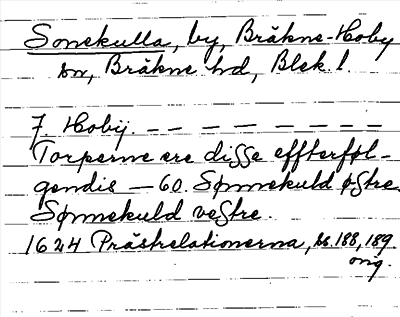 Sonekulla, by, Bräkne-Hoby
sn, Bräkne hd, Blek. l.
J. Hobij. — — — — — — —
Torperne ere disse effterføl-
gendis — 60. Sønnekuld østre.
Sønnekuld vestre.
1624 Prästrelationerna, ss. 188, 189
orig.